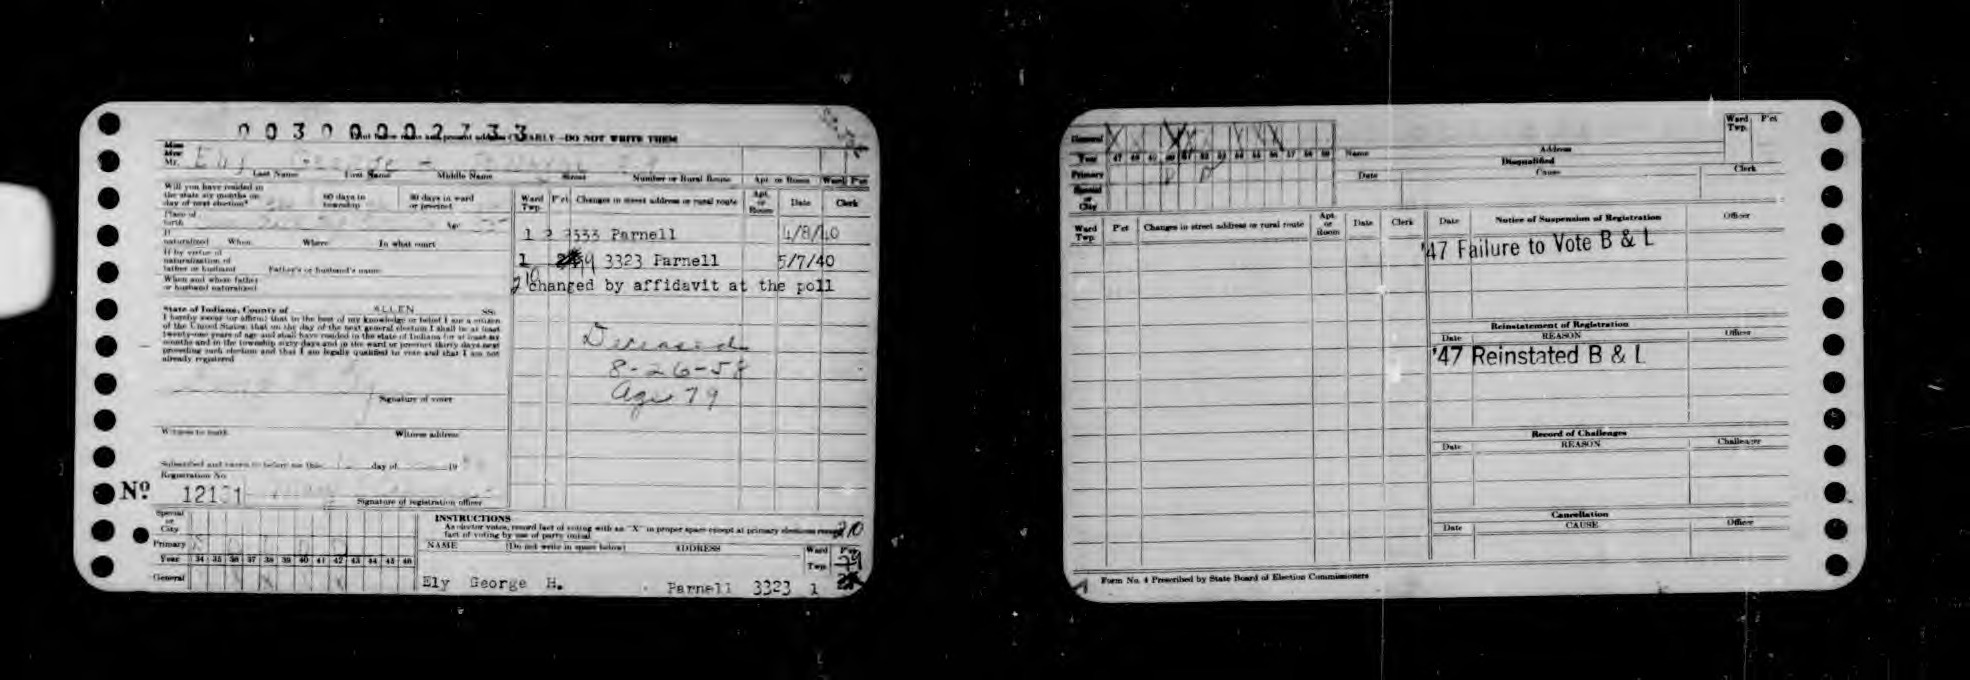 00300002733
CLEARLY—DO NOT WRITE THEM
Miss
Mrs.
Mr. Ely George
Last Name First Name Middle Name Street Number or Rural Route Apt. or Room Ward P'ct
Will you have resided in
the state six months on
day of next election?
60 days in
township
30 days in ward
or precinct
Place of
birth
Age
If
naturalized When Where In what court
If by virtue of
naturalization of
father or husband Father's or husband's name
When and where father
or husband naturalized
State of Indiana, County of ALLEN SS:
I hereby swear (or affirm) that to the best of my knowledge or belief I am a citizen
of the United States; that on the day of the next general election I shall be at least
twenty-one years of age and shall have resided in the state of Indiana for at least six
months and in the township sixty days and in the ward or precinct thirty days next
preceding such election and that I am legally qualified to vote and that I am not
already registered
Signature of voter
Witness to mark Witness address
Subscribed and sworn to before me this day of 19
Registration No.
No. 12131
Signature of registration officer
Ward Twp. P'ct Changes in street address or rural route Apt. or Room Date Clerk
1 Parnell 4/8/40
1 3323 Parnell 5/7/40
changed by affidavit at the poll
Deceased
8-26-58
Age 79
Special
or
City
Primary
Year 34 35 36 37 38 39 40 41 42 43 44 45 46
General
INSTRUCTIONS
As elector votes, record fact of voting with an "X" in proper space except at primary elections record
fact of voting by use of party initial.
210
NAME (Do not write in space below) ADDRESS Ward Twp. P'ct
Ely George H. Parnell 3323 1
General
Year 47 48 49 50 51 52 53 54 55 56 57 58 59
Primary
Special
or
City
Name Address
Ward
Twp.
P'ct
Disqualified
Date Cause Clerk
Ward Twp. P'ct Changes in street address or rural route Apt. or Room Date Clerk
Date Notice of Suspension of Registration Officer
'47 Failure to Vote B & L
Reinstatement of Registration
Date REASON Officer
'47 Reinstated B & L
Record of Challenges
Date REASON Challenger
Cancellation
Date CAUSE Officer
Form No. 4 Prescribed by State Board of Election Commissioners